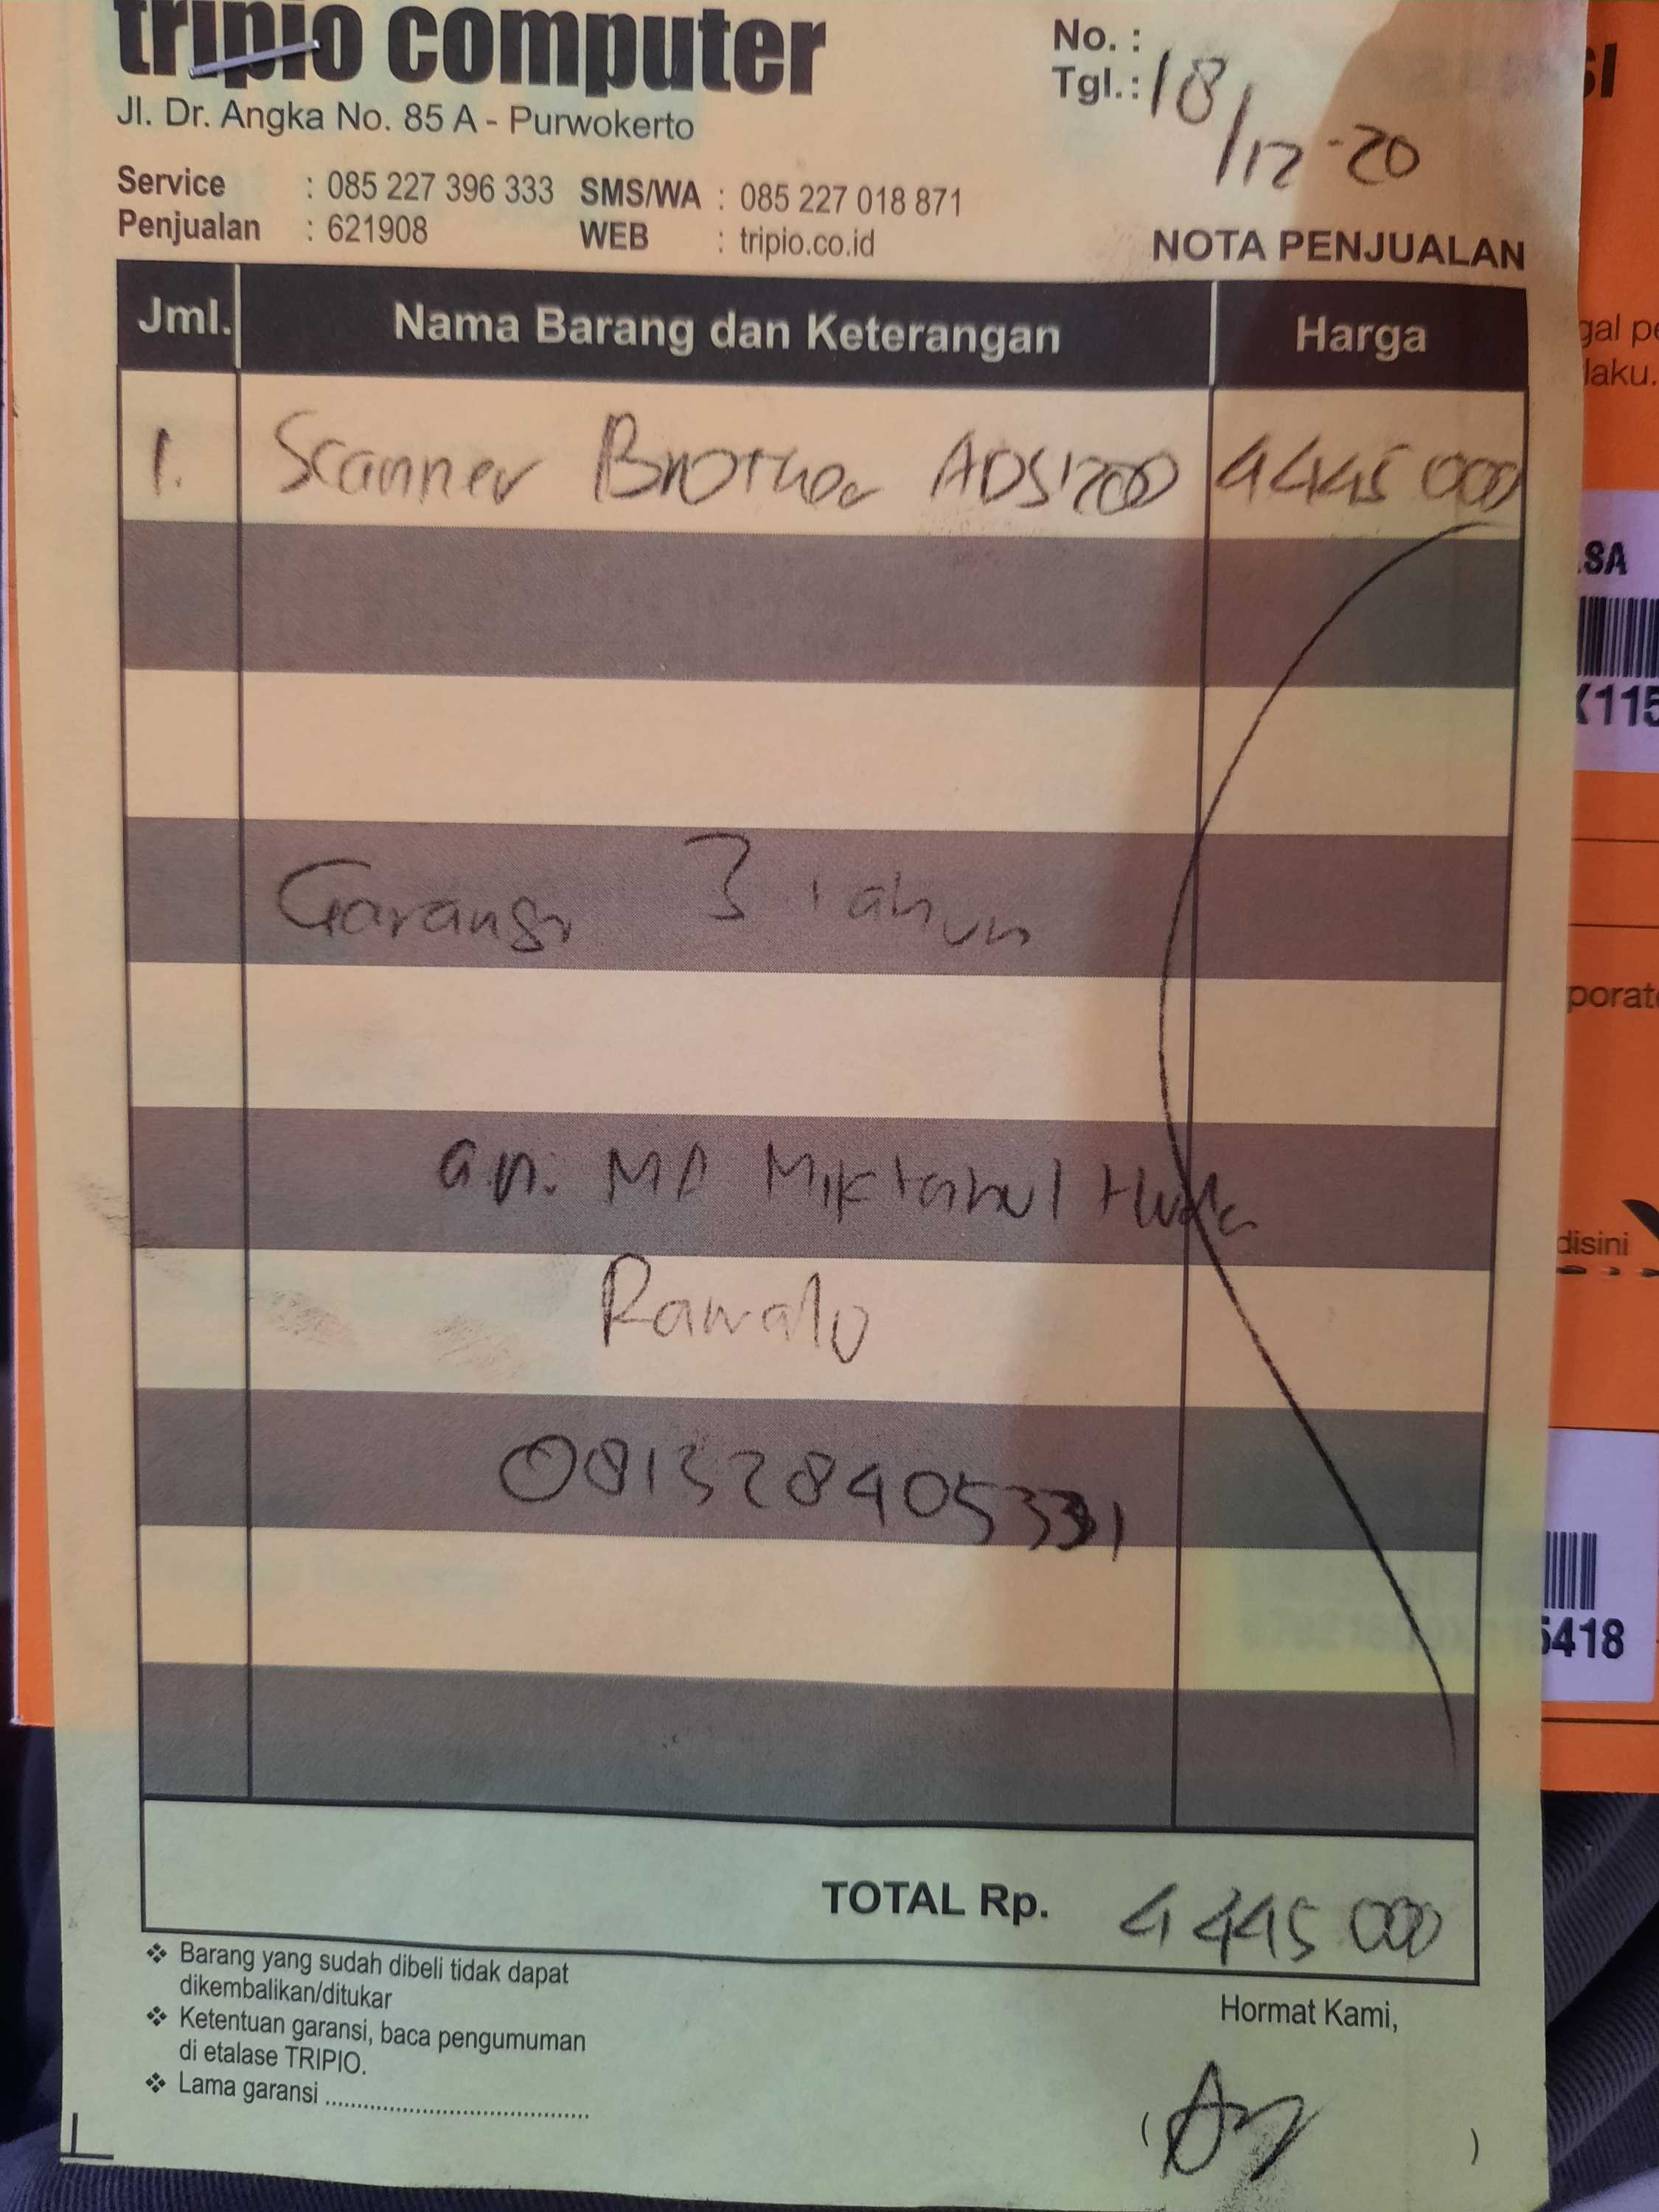 tripio computer
Jl. Dr. Angka No. 85 A - Purwokerto
No. :
Tgl. : 18/12-20
Service : 085 227 396 333 SMS/WA : 085 227 018 871
Penjualan : 621908 WEB : tripio.co.id
NOTA PENJUALAN
Jml. Nama Barang dan Keterangan Harga
1. Scanner Brother ADS1200 4445 000
Garansi 3 tahun
a.n. Miktahul Huda
Rawalo
TOTAL Rp. 4445 000
❖ Barang yang sudah dibeli tidak dapat
dikembalikan/ditukar
❖ Ketentuan garansi, baca pengumuman
di etalase TRIPIO.
❖ Lama garansi ........................................
Hormat Kami,
( )
SI
gal pe
laku.
SA
X115
porate
disini
5418